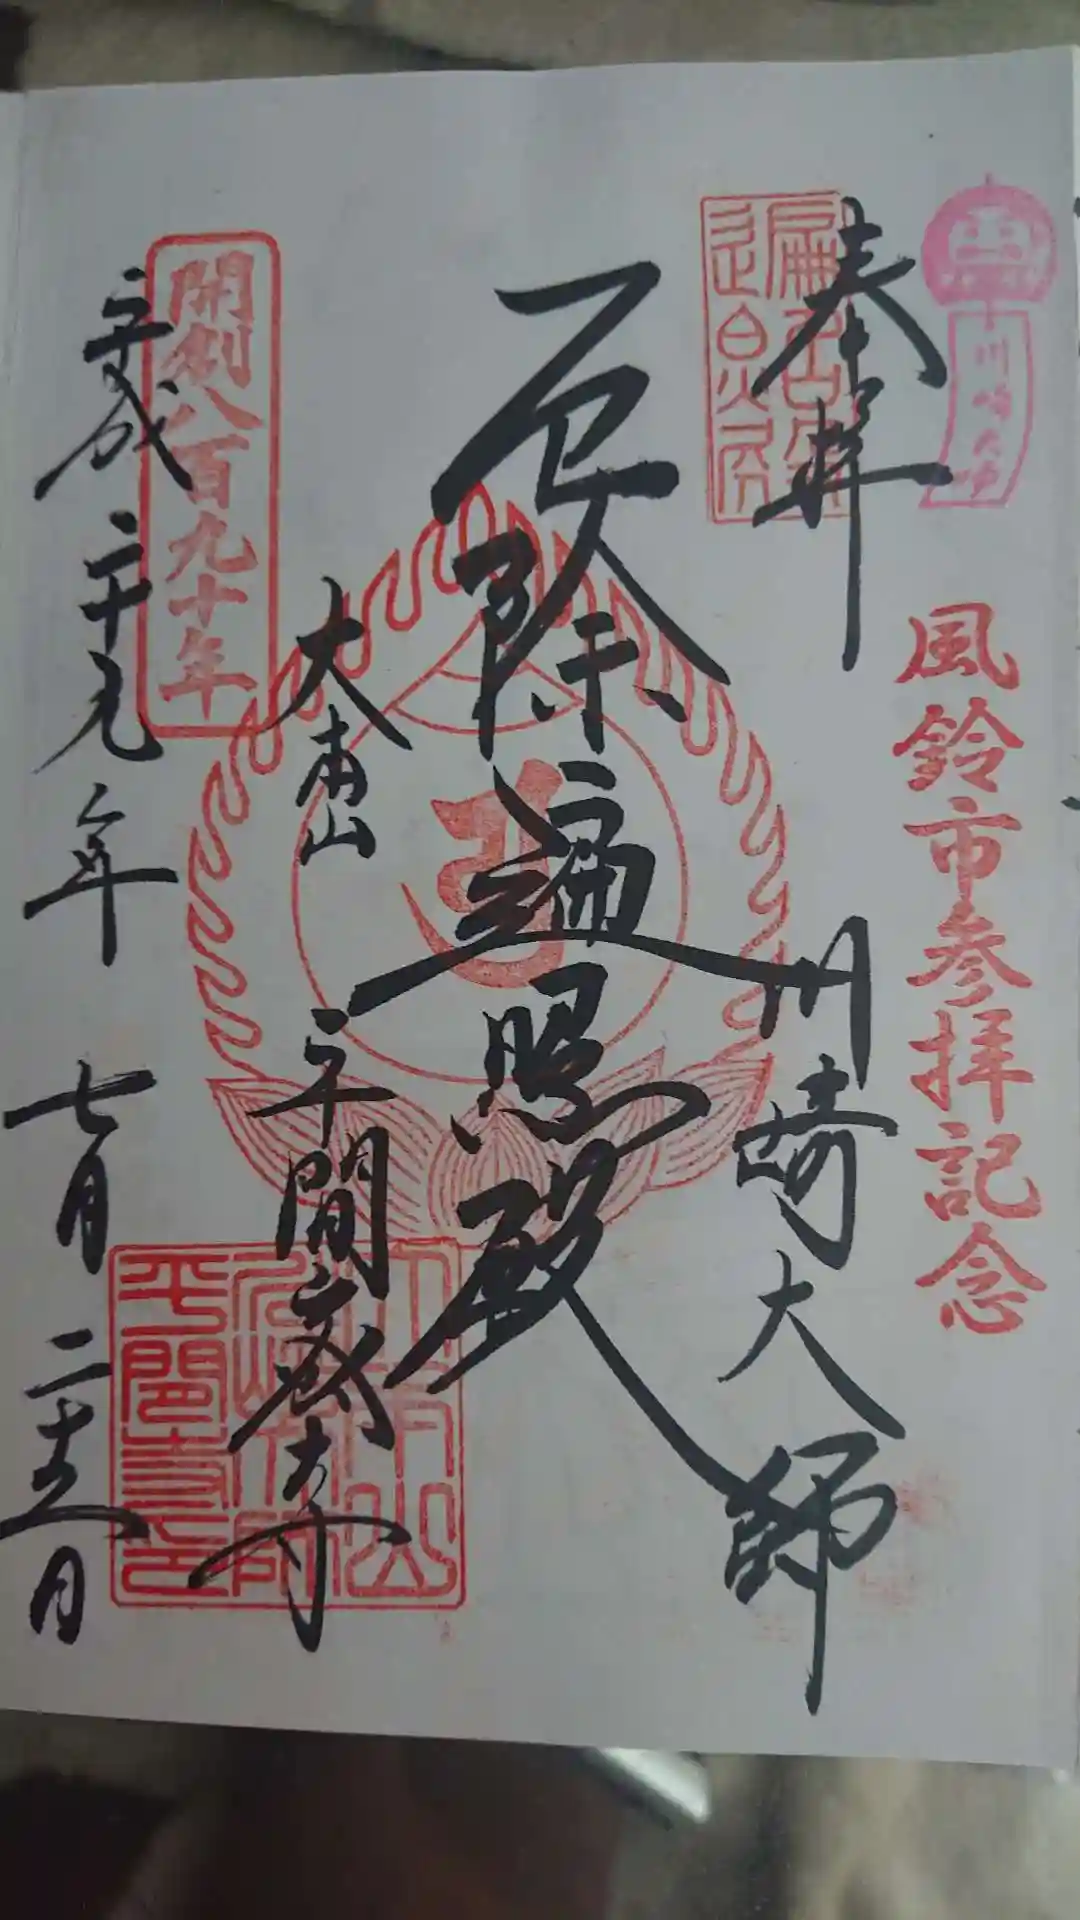 川崎大師
風鈴市参拝記念
奉拝
川崎大師
厄除遍照殿
大本山
平間寺
開創八百九十年
平成二十九年
七月二十五日